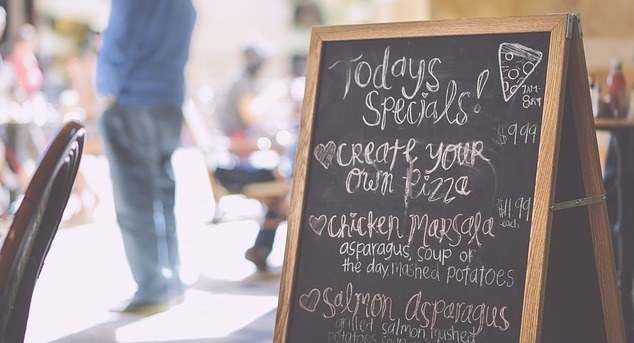 Todays
Specials!
7AM-
8PM
$9.99
create your
own pizza
$11.99
each
chicken Marsala
asparagus, soup of
the day, mashed potatoes
salmon asparagus
grilled salmon, mashed
potatoes